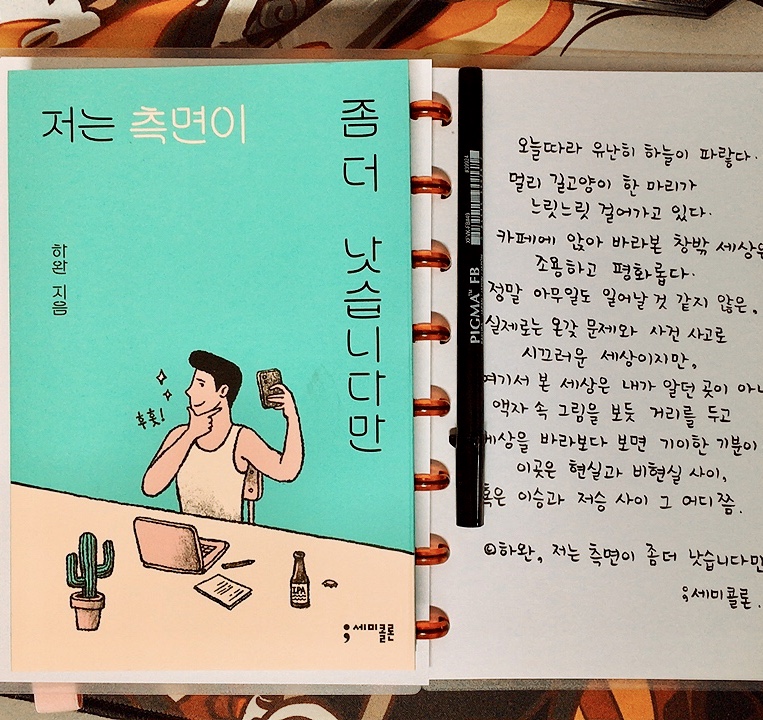 저는 측면이
좀 더 낫습니다만
하완 지음
후훗!
IPA
세미콜론
PIGMA™ FB
오늘따라 유난히 하늘이 파랗다.
멀리 길고양이 한 마리가
느릿느릿 걸어가고 있다.
카페에 앉아 바라본 창밖 세상은
조용하고 평화롭다.
정말 아무일도 일어날 것 같지 않은,
실제로는 온갖 문제와 사건 사고로
시끄러운 세상이지만,
여기서 본 세상은 내가 알던 곳이
액자 속 그림을 보듯 거리를 두고
세상을 바라보다 보면 기이한 기분이
이곳은 현실과 비현실 사이,
혹은 이승과 저승 사이 그 어디쯤.
©하완, 저는 측면이 좀 더 낫습니다만
;세미콜론.